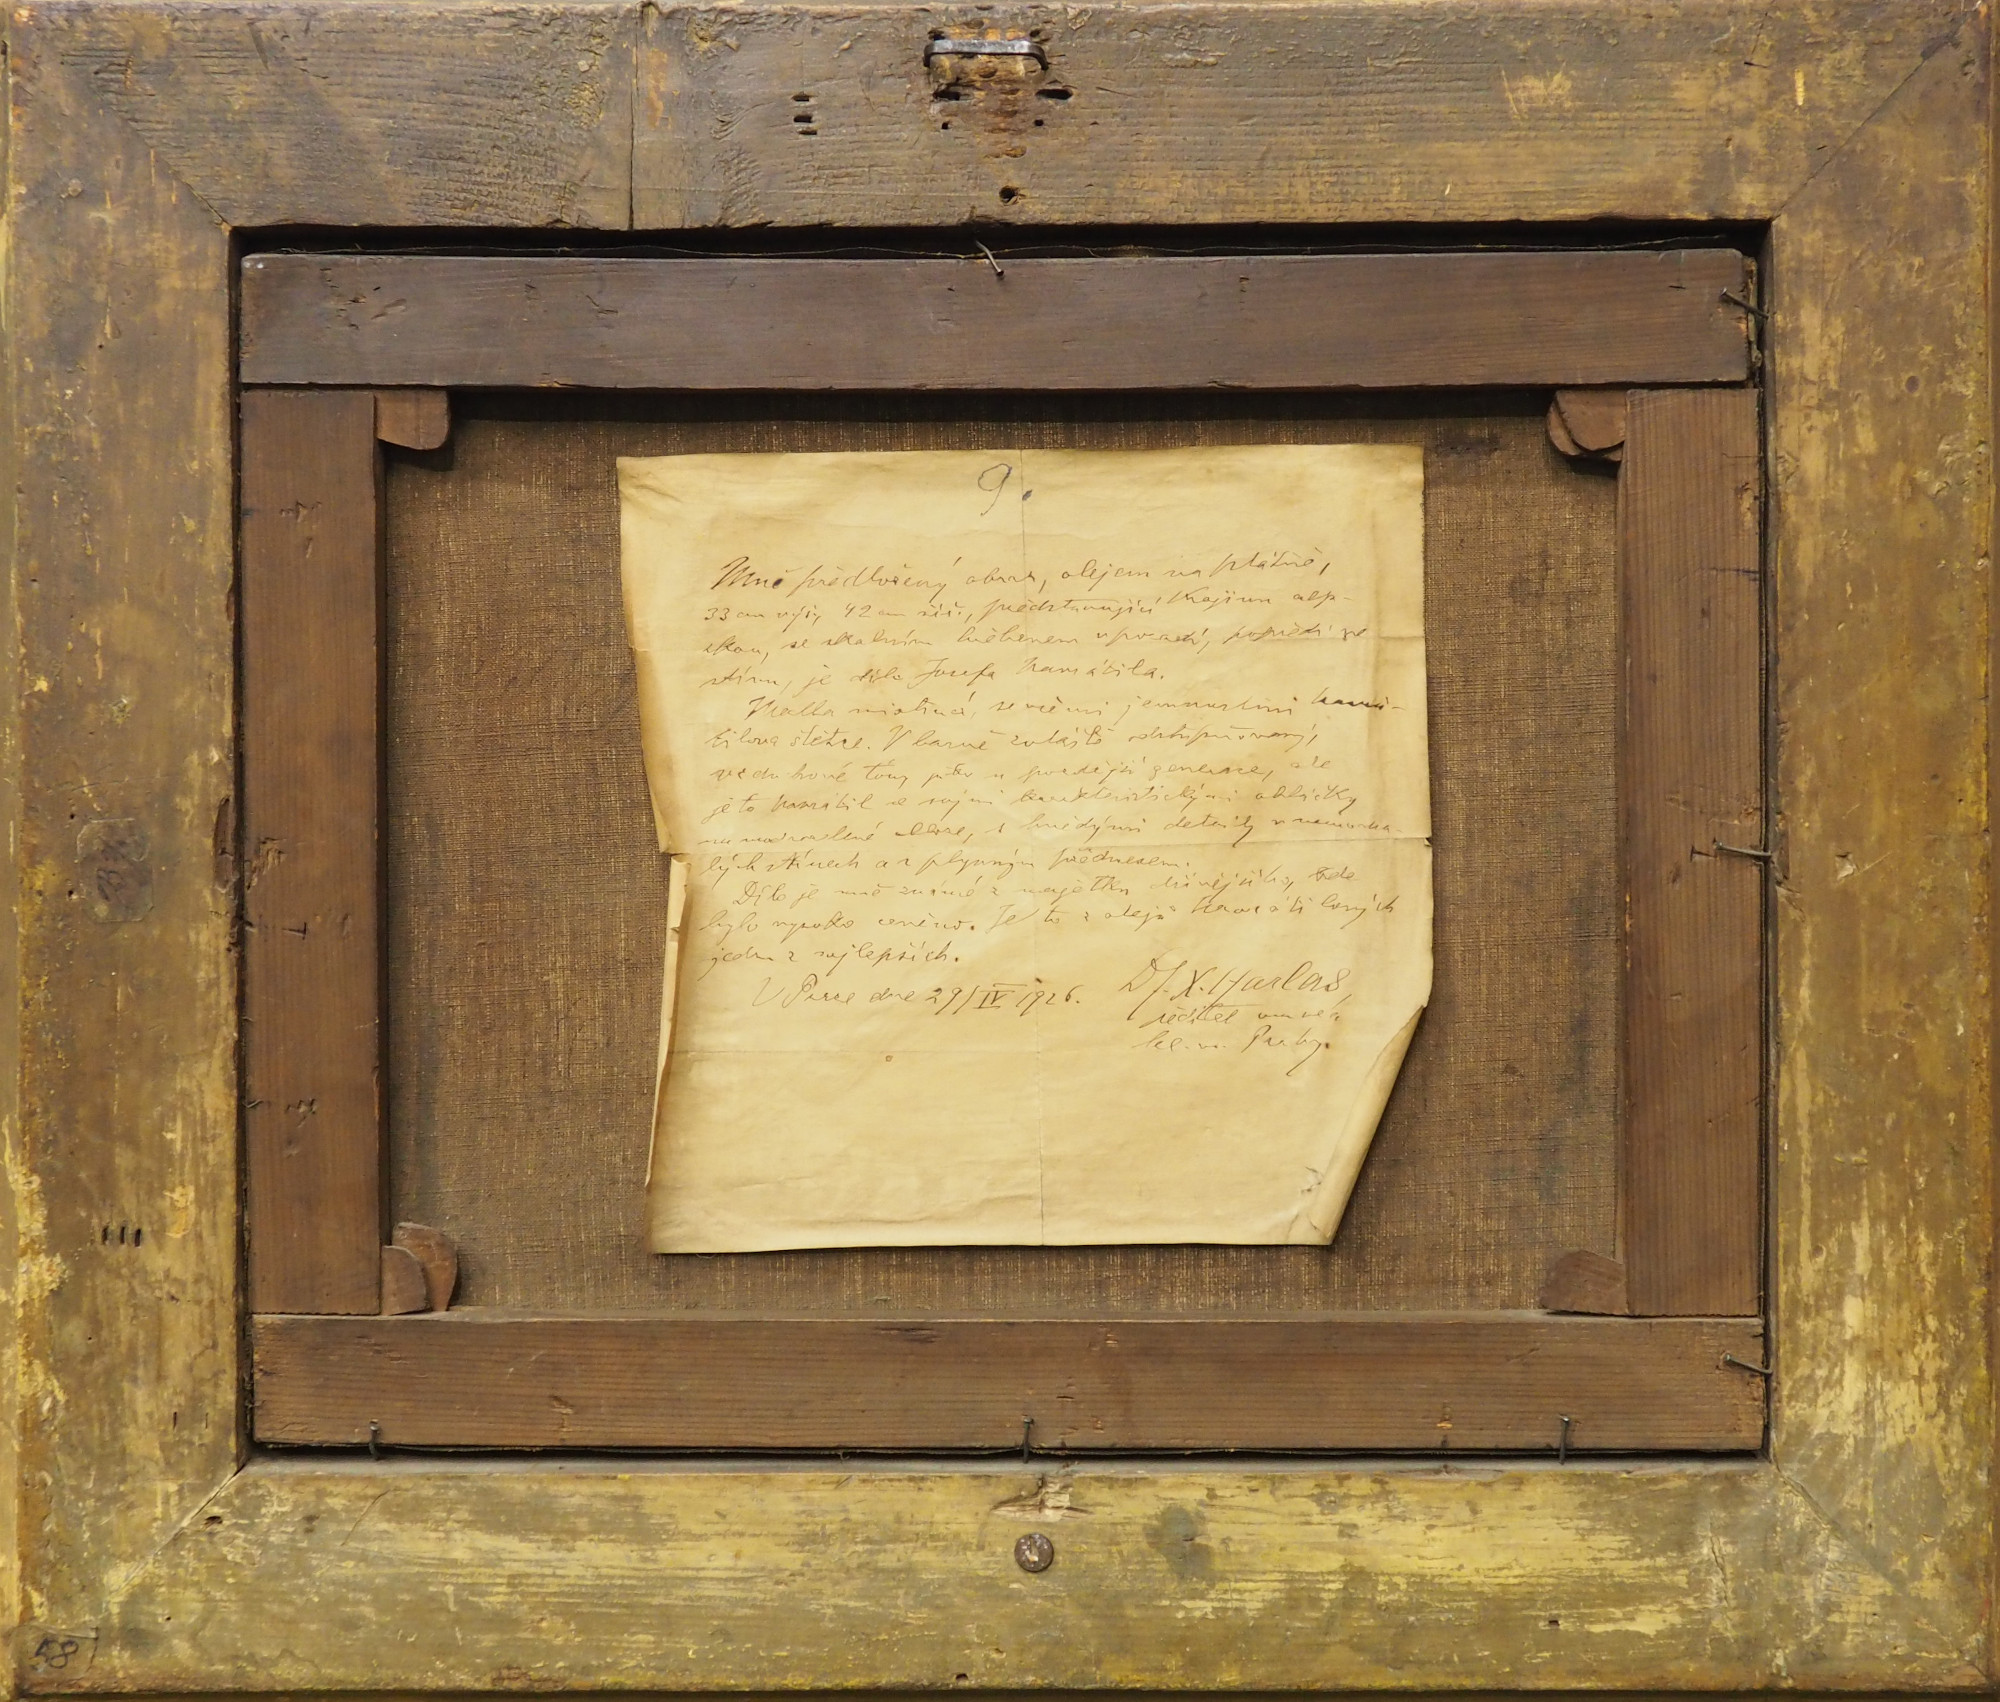 9.
Mně předložený obraz, olejem na plátně,
33 cm výš., 42 cm šíř., představující Krajinu alp-
skou, se skalním hřebenem v pozadí, popředí ve
stínu, je dílo Josefa Navrátila.
Malba mistrná, se všemi jemnostmi Navrá-
tilova štětce. V barvě zvláště odstupňovaný,
vzduchové tóny jako u pozdější generace, ale
je to Navrátil se svými karakteristickými obláčky
na modrozelené obloze, s hnědými detaily v
lých stínech a s plynným přednesem.
Dílo je mně známé z majetku dřívějšího, kde
bylo vysoko ceněno. Je to z olejů Navrátilových
jedno z nejlepších.
V Praze dne 29/IV 1926.
Dr. F. X. Harlas,
ředitel musea
hl. m. Prahy.
58